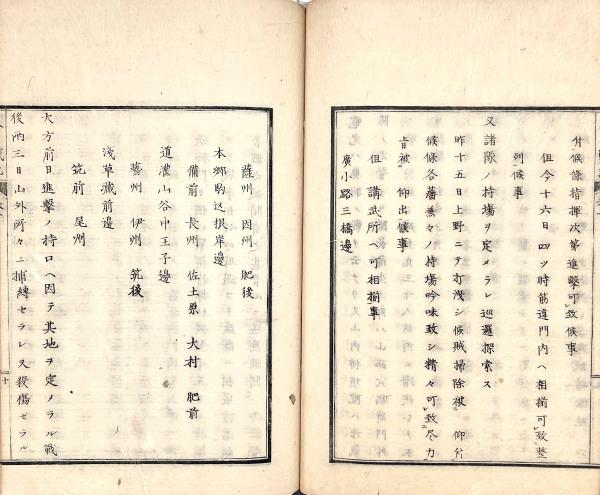 付候條指揮次第進擊可致候事
但今十六日四ツ時筋違門内ヘ相揃可致整
列候事
又諸隊ノ持場ヲ定メラレ巡邏探索ス
昨十五日上野ニテ打洩シ候賊掃除被 仰付
候條各藩兼々ノ持場吟味致シ精々可致尽力
旨被 仰出候事
但講武所ヘ可相揃事
廣小路三橋邊
薩州 因州 肥後
本郷駒込根岸邊
備前 長州 佐土原 大村 肥前
道灌山谷中王子邊
藝州 伊州 筑後
浅草藏前邊
筑前 尾州
大方前日進擊ノ持口ヘ因テ其地ヲ定メラル戰
後両三日山外所々ニ捕縛セラレ又殺傷セラル
十